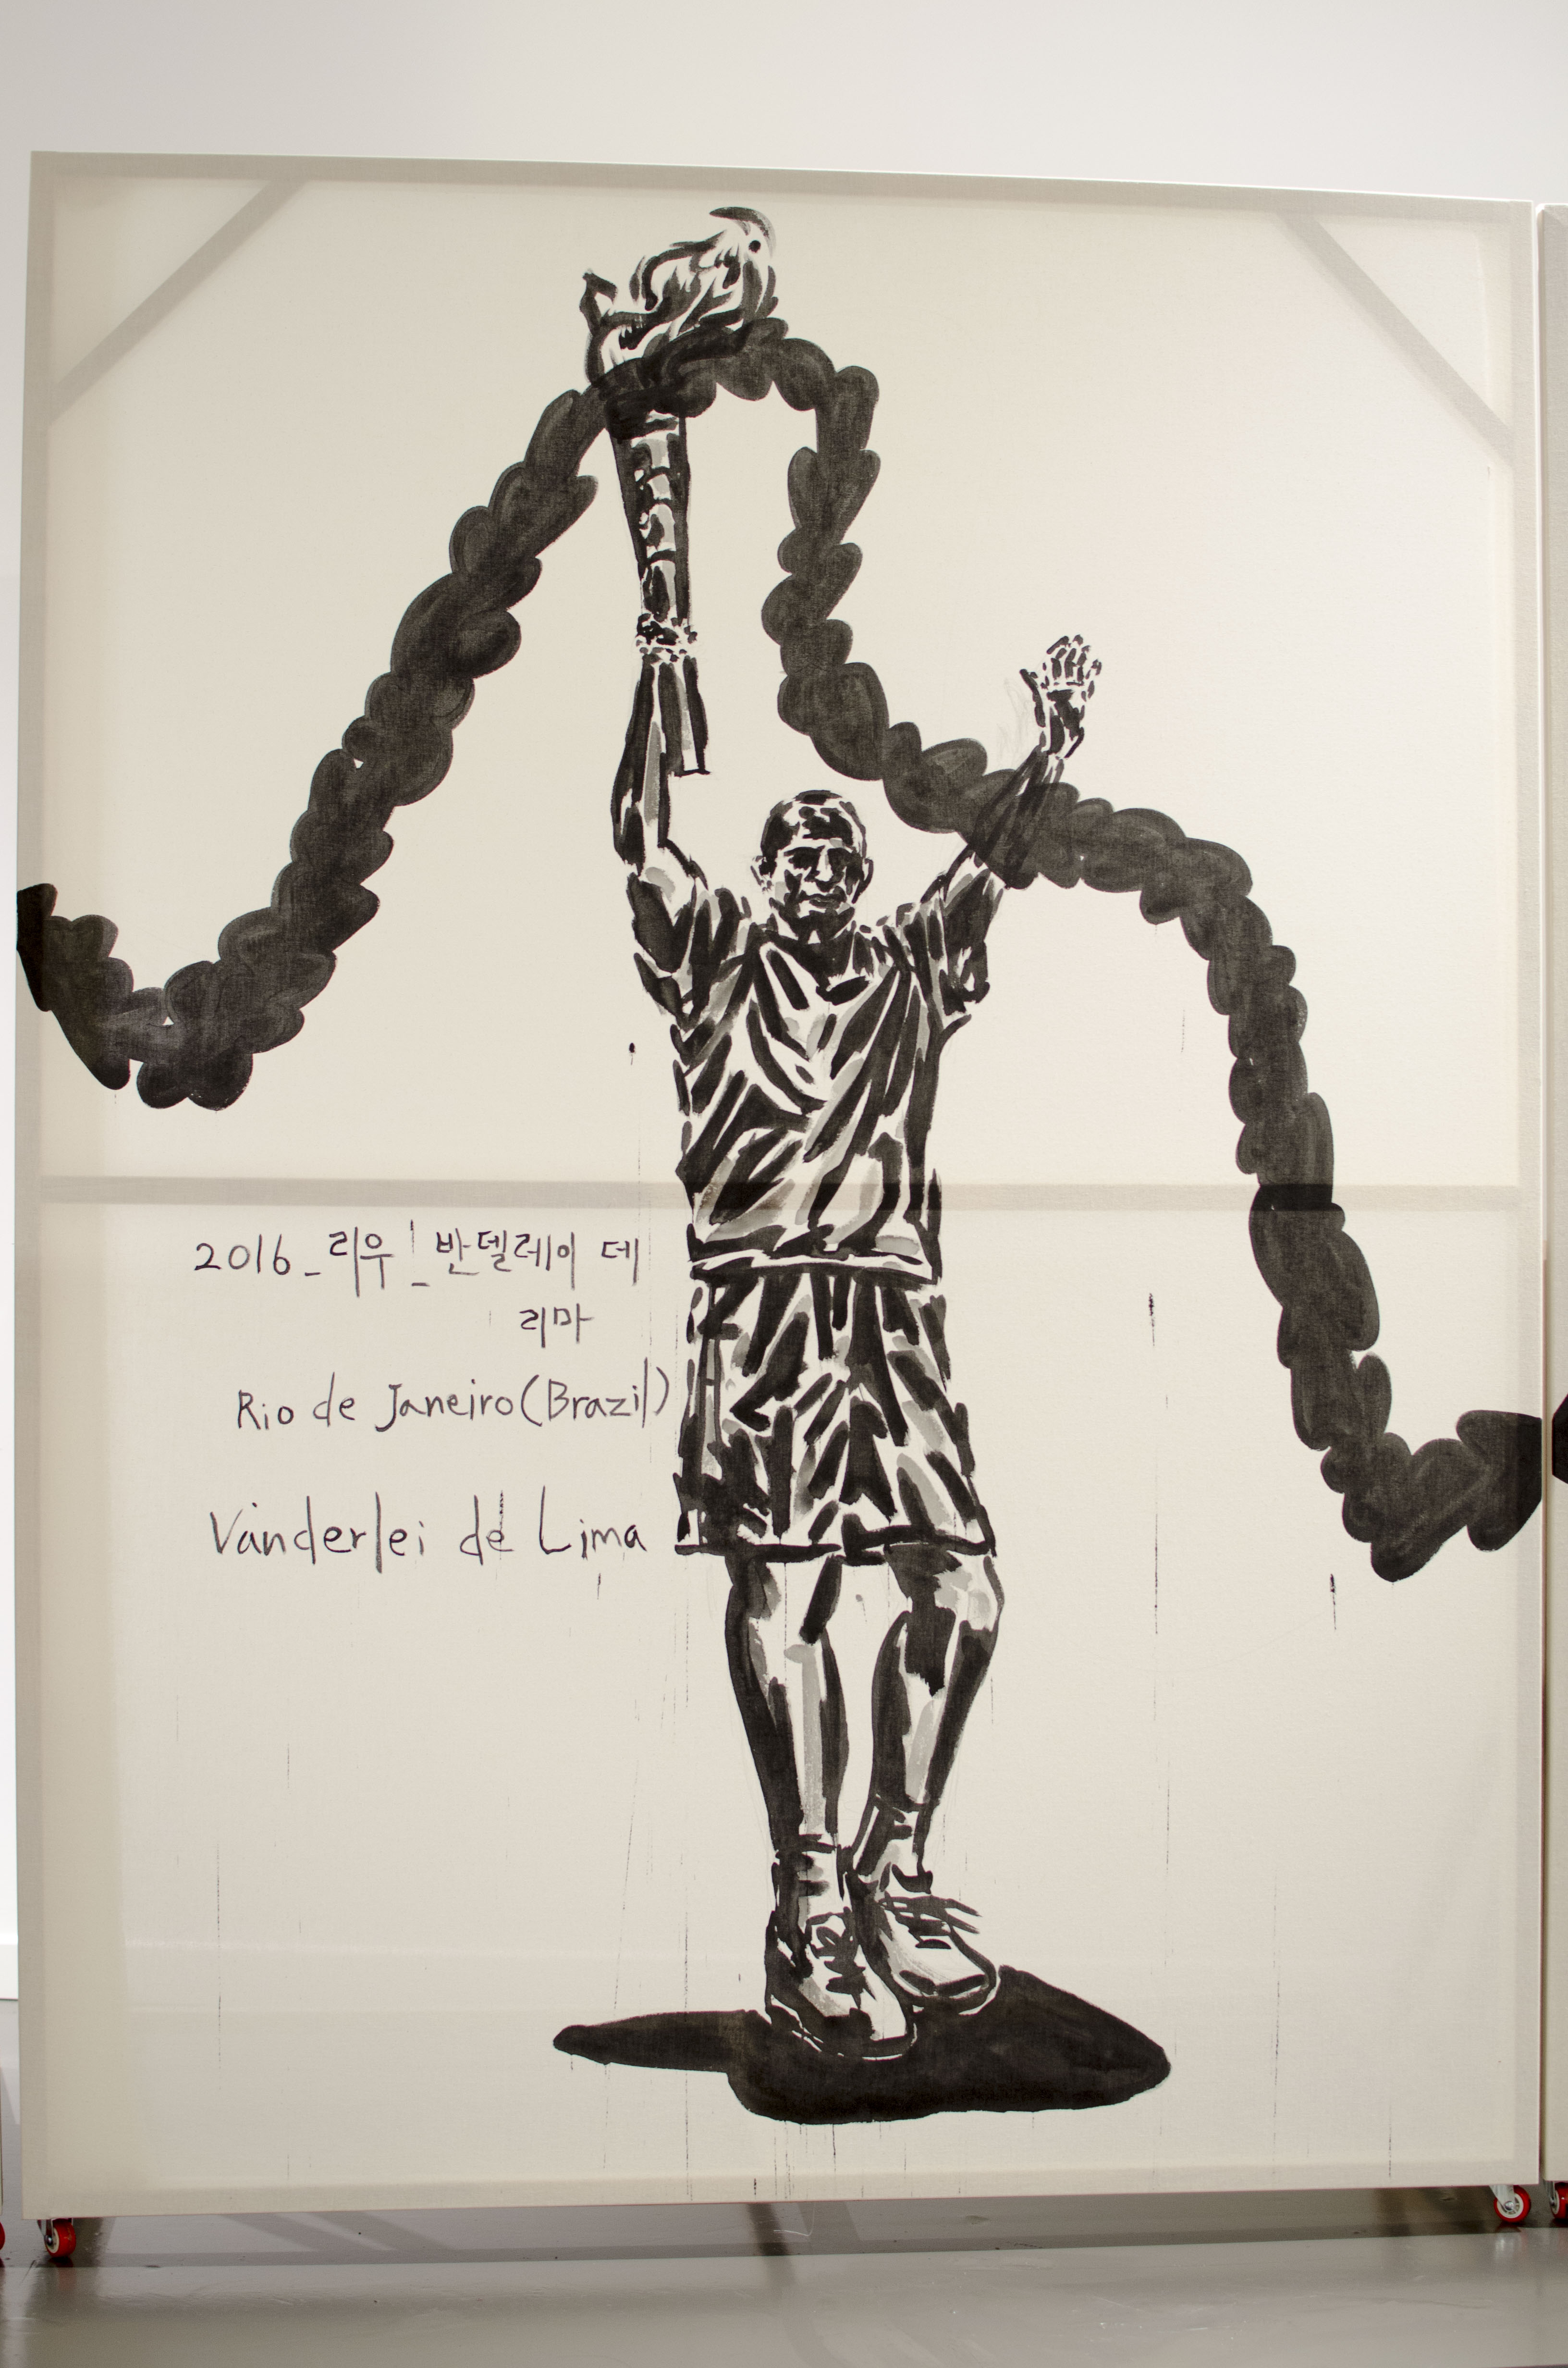 2016_리우_반델레이 데
리마
Rio de Janeiro(Brazil)
Vanderlei de Lima